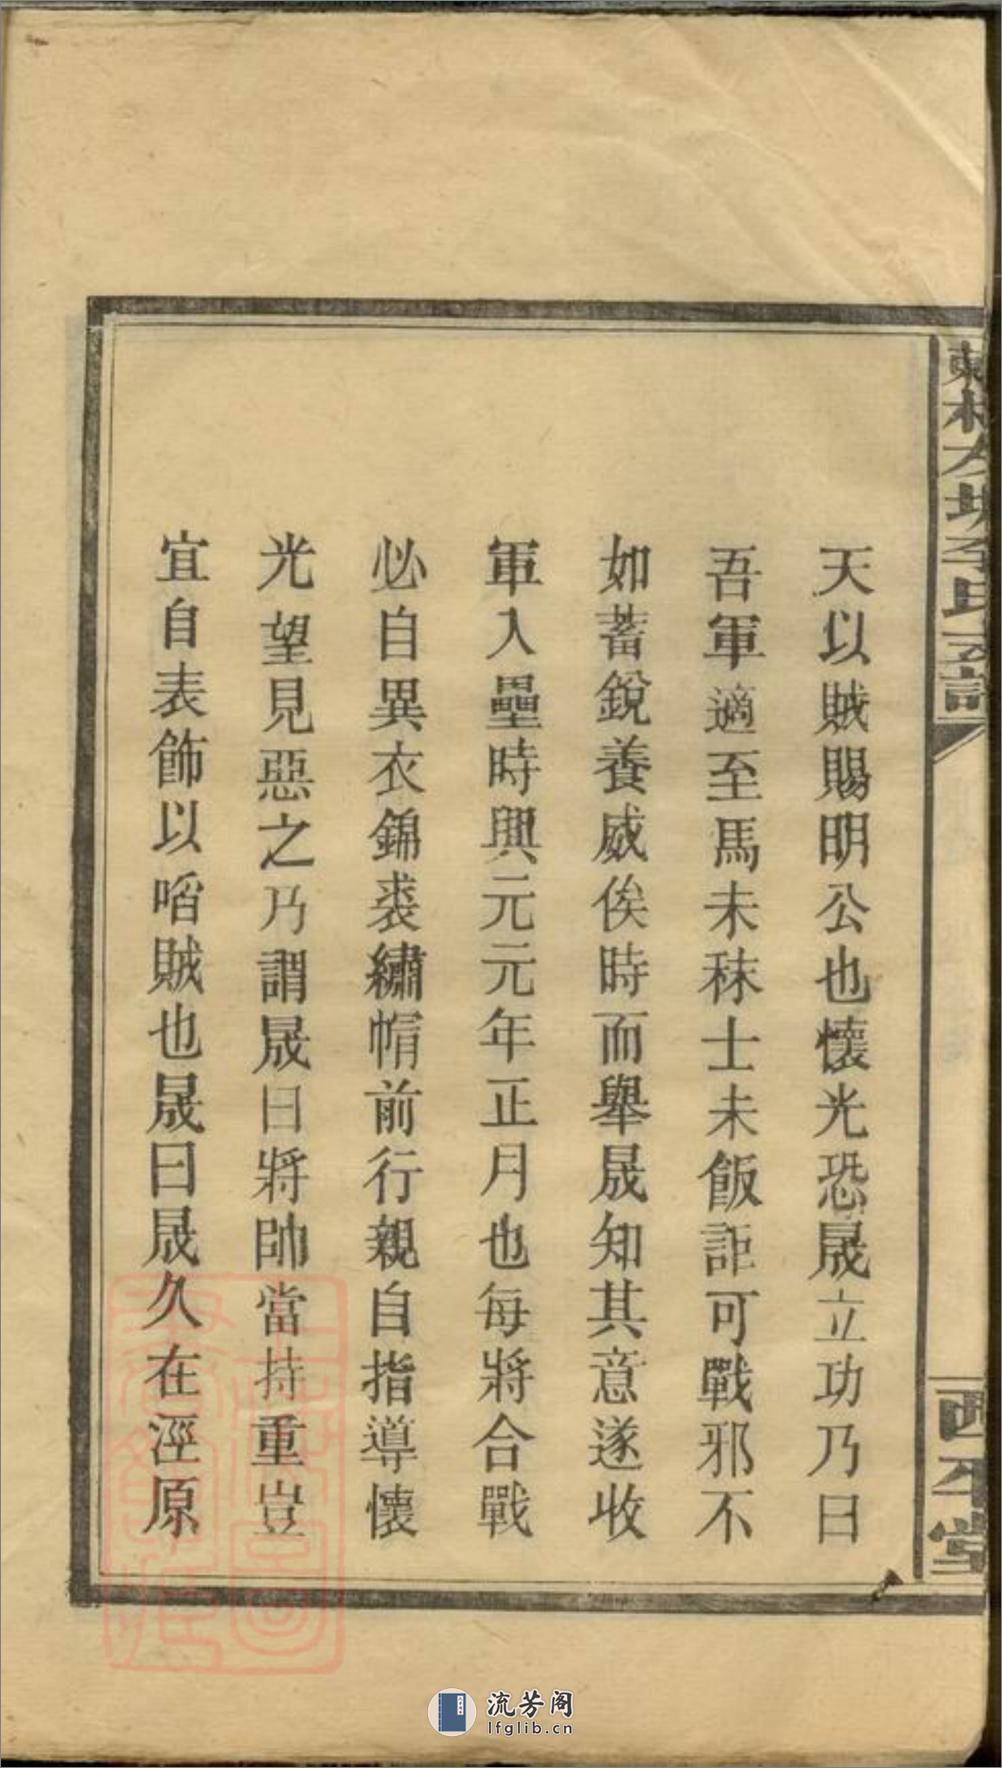 天以賊賜明公也懷光恐晟立功乃曰
吾軍適至馬未秣士未飯詎可戰邪不
如蓄銳養威俟時而舉晟知其意遂收
軍入壘時興元元年正月也每將合戰
必自異衣錦裘繡帽前行親自指導懷
光望見惡之乃謂晟曰將帥當持重豈
宜自表飾以啗賊也晟曰晟久在涇原
李氏
西平堂
流芳阁
lfglib.cn